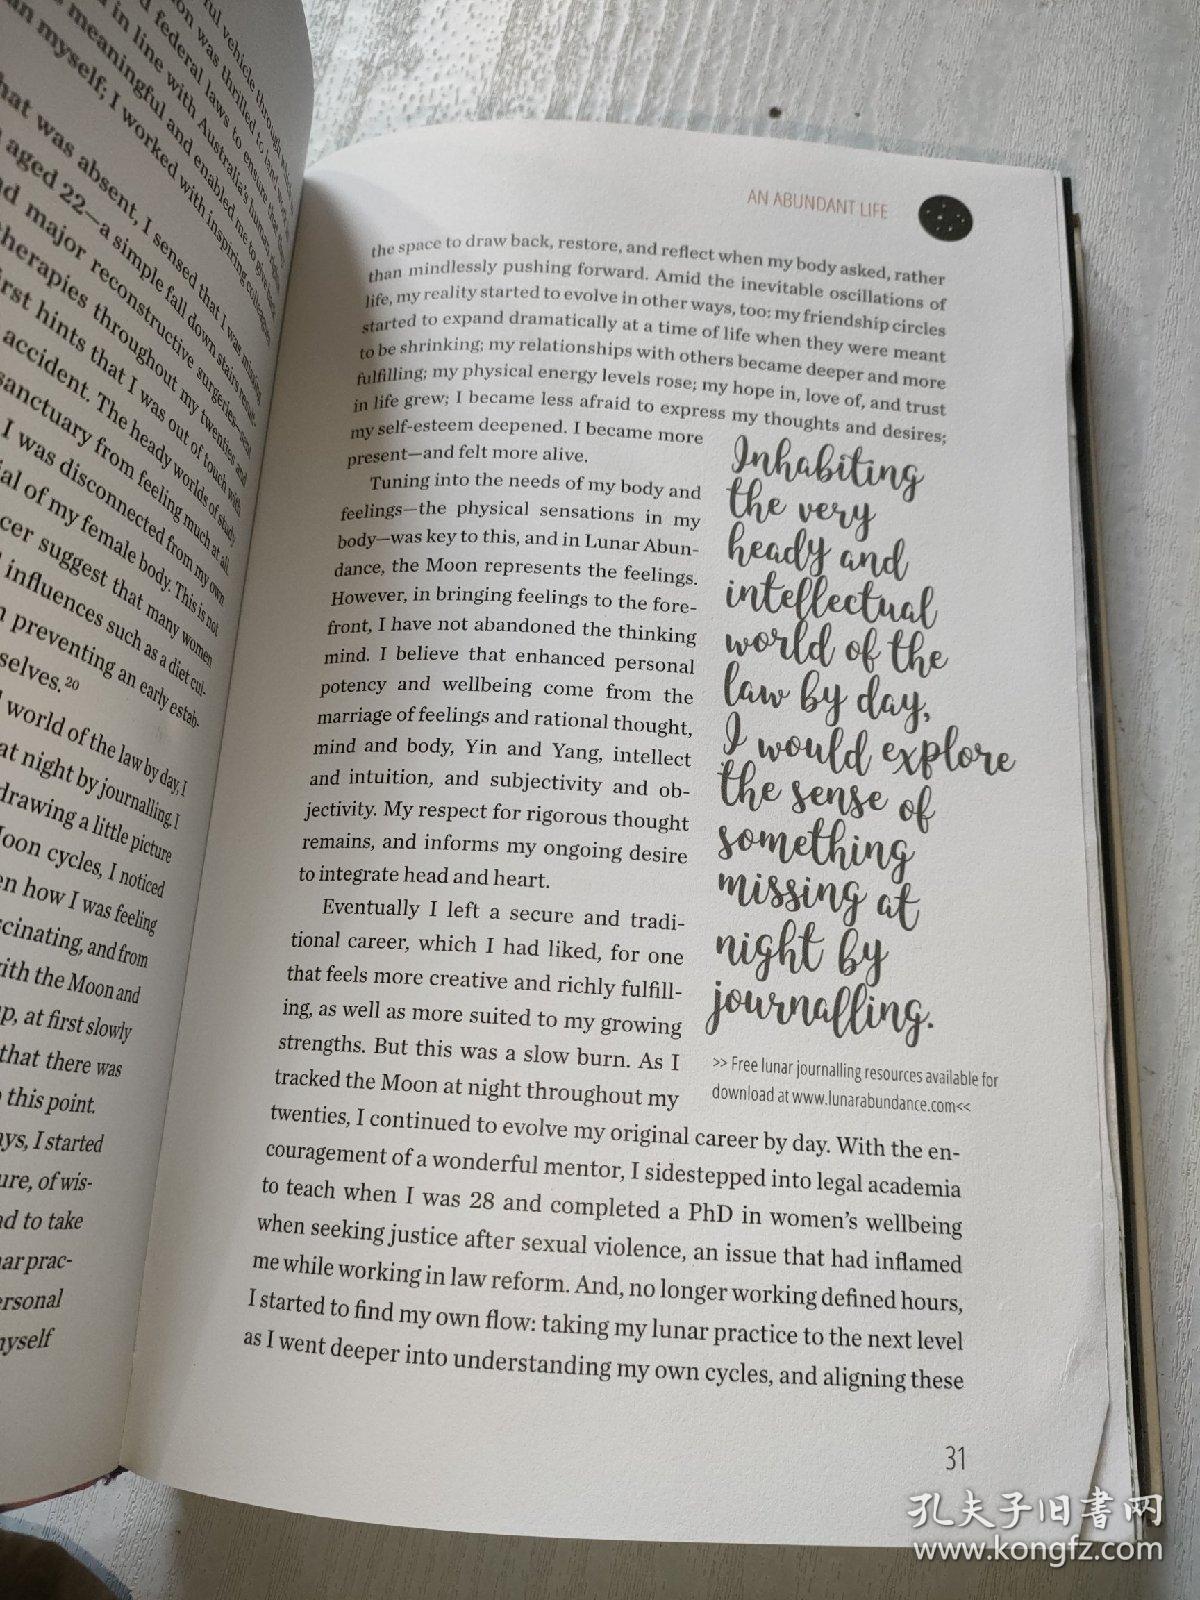 ful vehicle through
on was thrilled to
d federal laws to ensure that
d in line with Australia's human rights
s meaningful and enabled me to give
an myself; I worked with inspiring colleagues,
hat was absent, I sensed that I was missing
aged 22—a simple fall down stairs result-
nd major reconstructive surgeries—and
therapies throughout my twenties and
irst hints that I was out of touch with
accident. The heady worlds of study
sanctuary from feeling much at all.
I was disconnected from my own
ial of my female body. This is not
cer suggest that many women
influences such as a diet cul-
n preventing an early estab-
selves.²⁰
world of the law by day, I
at night by journalling. I
drawing a little picture
Moon cycles, I noticed
en how I was feeling
scinating, and from
with the Moon and
up, at first slowly
that there was
this point.
ays, I started
ure, of wis-
ad to take
nar prac-
ersonal
myself
AN ABUNDANT LIFE
the space to draw back, restore, and reflect when my body asked, rather
than mindlessly pushing forward. Amid the inevitable oscillations of
life, my reality started to evolve in other ways, too: my friendship circles
started to expand dramatically at a time of life when they were meant
to be shrinking; my relationships with others became deeper and more
fulfilling; my physical energy levels rose; my hope in, love of, and trust
in life grew; I became less afraid to express my thoughts and desires;
my self-esteem deepened. I became more
present—and felt more alive.
Tuning into the needs of my body and
feelings—the physical sensations in my
body—was key to this, and in Lunar Abun-
dance, the Moon represents the feelings.
However, in bringing feelings to the fore-
front, I have not abandoned the thinking
mind. I believe that enhanced personal
potency and wellbeing come from the
marriage of feelings and rational thought,
mind and body, Yin and Yang, intellect
and intuition, and subjectivity and ob-
jectivity. My respect for rigorous thought
remains, and informs my ongoing desire
to integrate head and heart.
Eventually I left a secure and tradi-
tional career, which I had liked, for one
that feels more creative and richly fulfill-
ing, as well as more suited to my growing
strengths. But this was a slow burn. As I
tracked the Moon at night throughout my
twenties, I continued to evolve my original career by day. With the en-
couragement of a wonderful mentor, I sidestepped into legal academia
to teach when I was 28 and completed a PhD in women's wellbeing
when seeking justice after sexual violence, an issue that had inflamed
me while working in law reform. And, no longer working defined hours,
I started to find my own flow: taking my lunar practice to the next level
as I went deeper into understanding my own cycles, and aligning these
Inhabiting
the very
heady and
intellectual
world of the
law by day,
I would explore
the sense of
something
missing at
night by
journalling.
>> Free lunar journalling resources available for
download at www.lunarabundance.com<<
31
孔夫子旧書网
www.kongfz.com